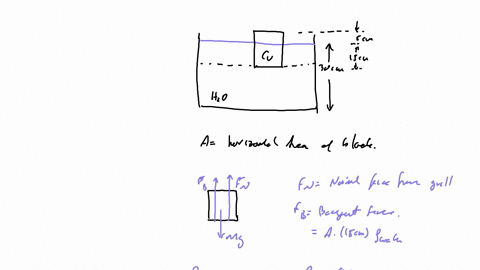 5cm
15cm
30cm
Cu
H2O
A = horizontal Area of block.
FB FN
Mg
FN = Normal force from grill
FB = Buoyant force.
= A. (15cm) ρwater